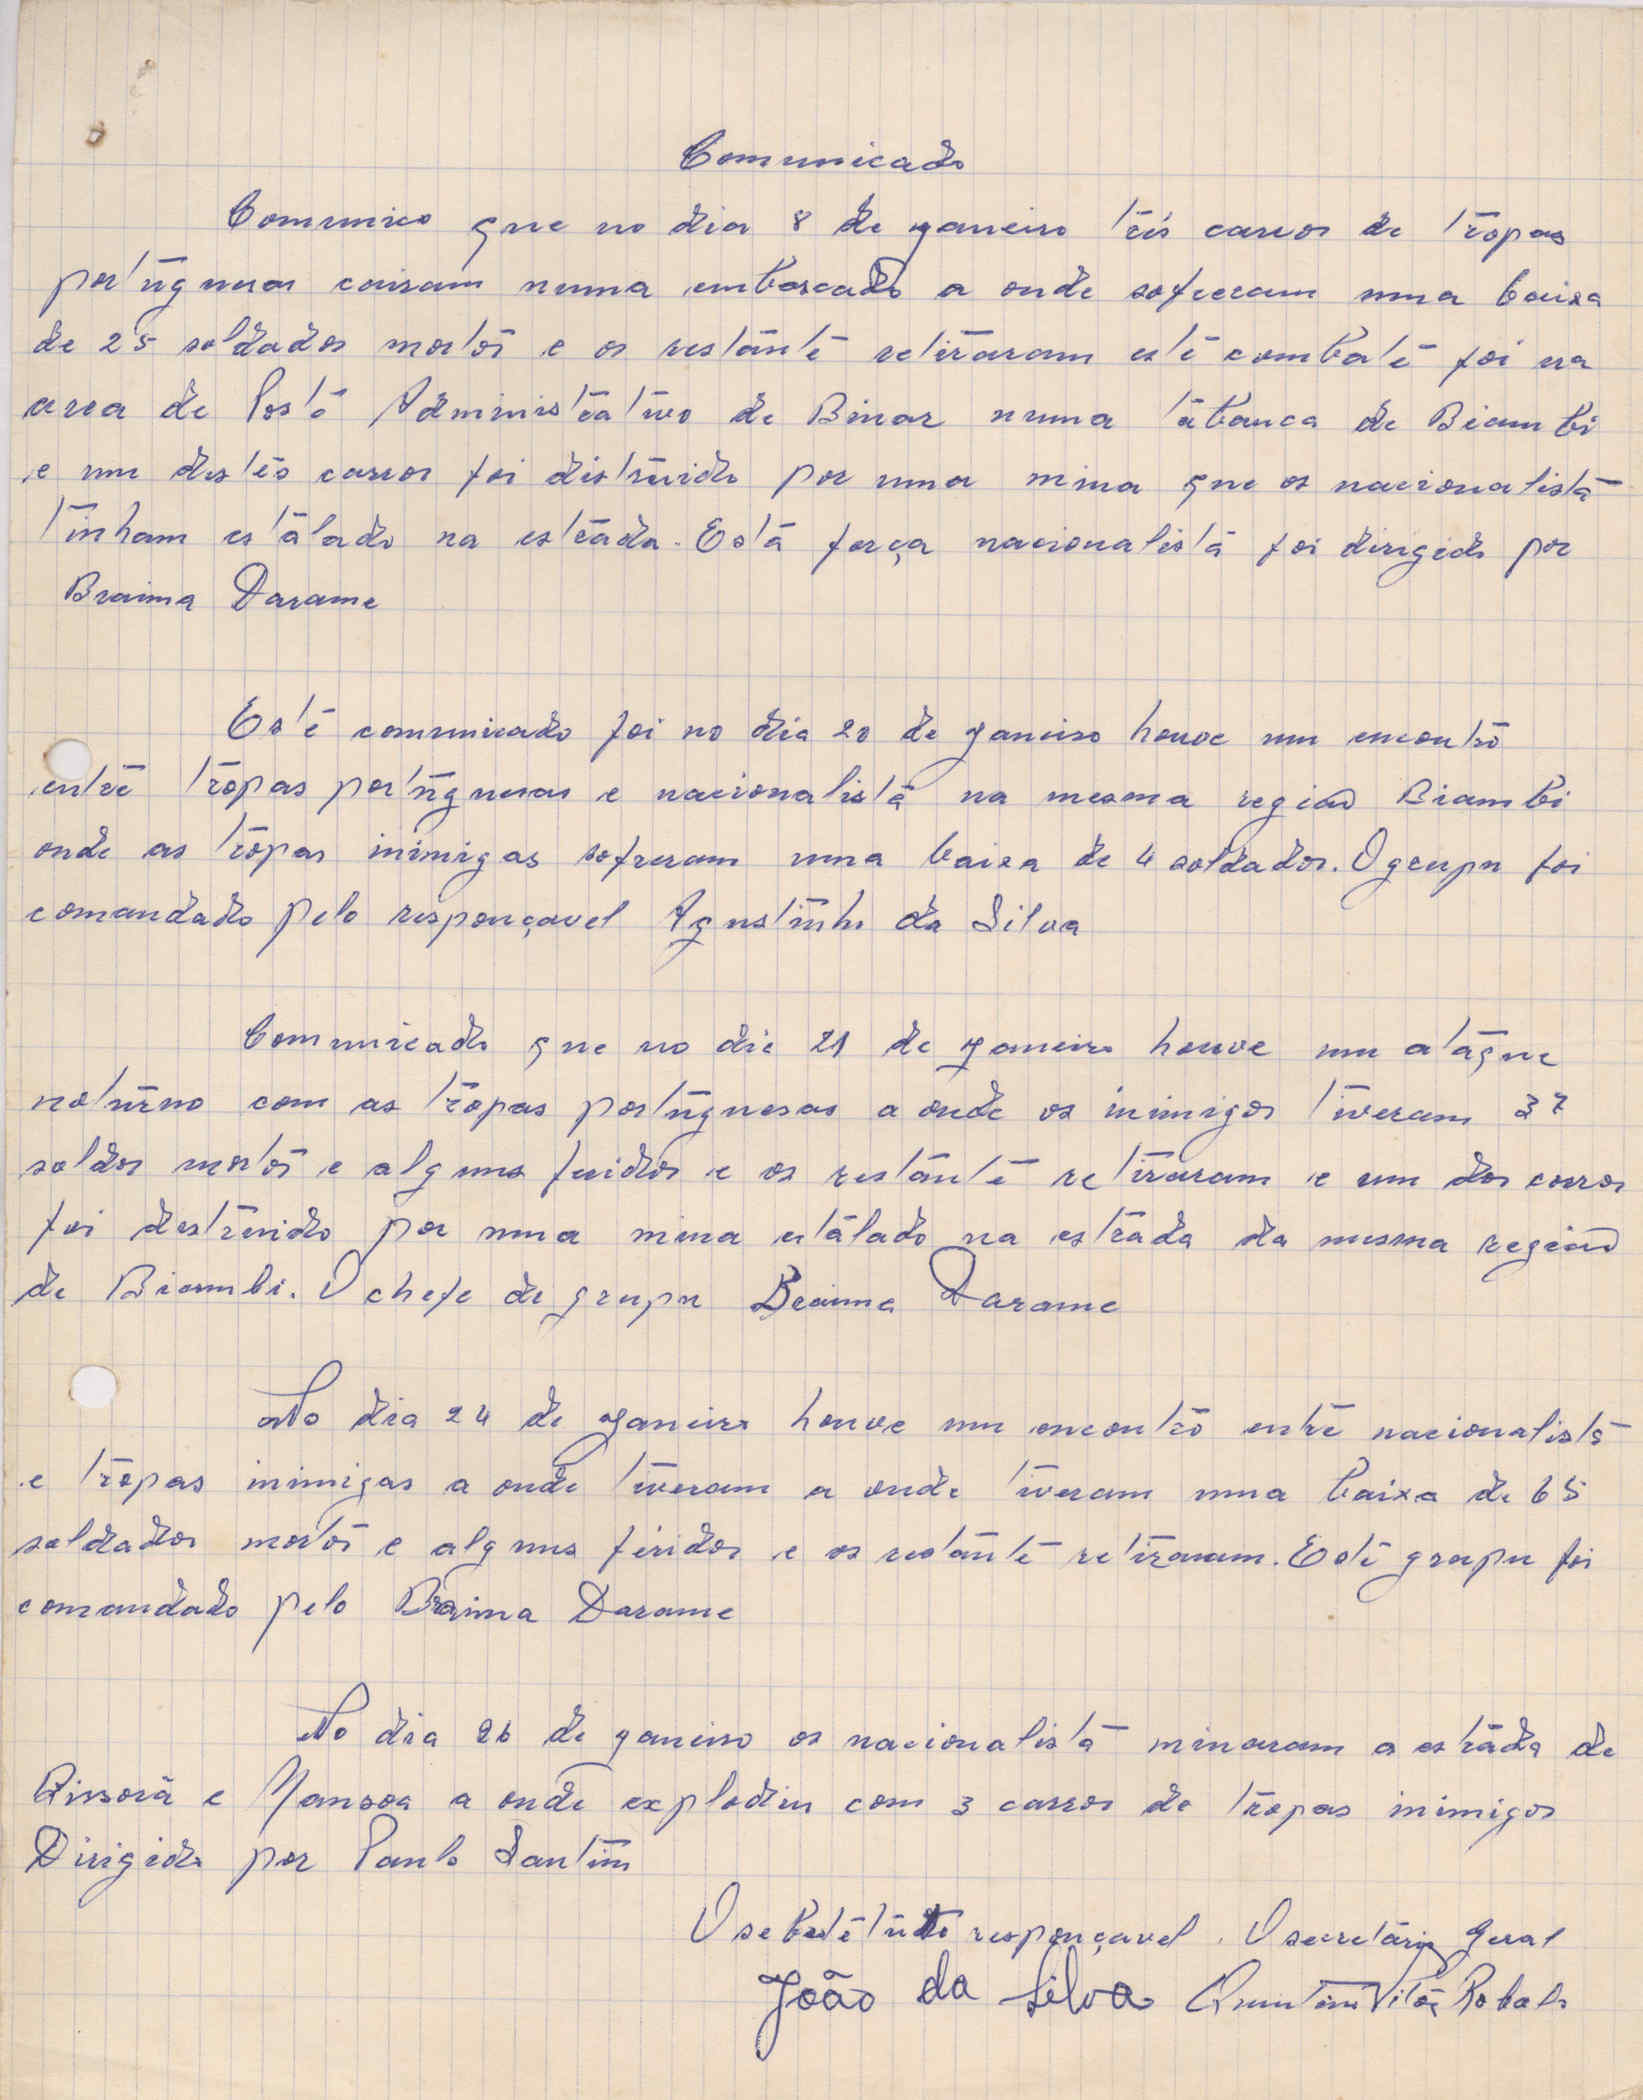 Comunicado
Comunico que no dia 8 de janeiro três carros de tropas
portuguesas cairam numa emboscado a onde sofreram uma baixa
de 25 soldados mortos e os restante retiraram este combate foi na
area de Posto Administrativo de Binar numa tabanca de Biambi
e um destes carros foi distruido por uma mina que os nacionalista
tinham estalado na estrada. Esta força nacionalista foi dirigido por
Braima Darame
Este comunicado foi no dia 20 de janeiro houve um encontro
entre tropas portuguesas e nacionalista na mesma região Biambi
onde as tropas inimigas sofreram uma baixa de 4 soldados. O grupu foi
comandado pelo responçavel Agustinho da Silva
Comunicado que no dia 21 de janeiro houve um ataque
noturno com as tropas portuguesas a onde os inimigos tiveram 37
soldos mortos e alguns feridos e os restante retiraram e um dos carros
foi destruido por uma mina estalado na estrada da mesma região
de Biambi. O chefe de grupu Braima Darame
No dia 24 de janeiro houve um encontro entre nacionalista
e tropas inimigas a onde tiveram a onde tiveram uma baixa de 65
soldados mortos e alguns firidos e os restante retiraram. Este grupu foi
comandado pelo Braima Darame
No dia 26 de janeiro os nacionalista minaram a estrada de
Bissorã e Mansoa a onde explodiu com 3 carros de tropas inimigos
Dirigido por Paulo Santim
O responçavel. O secretário geral
João da Silva Robalo